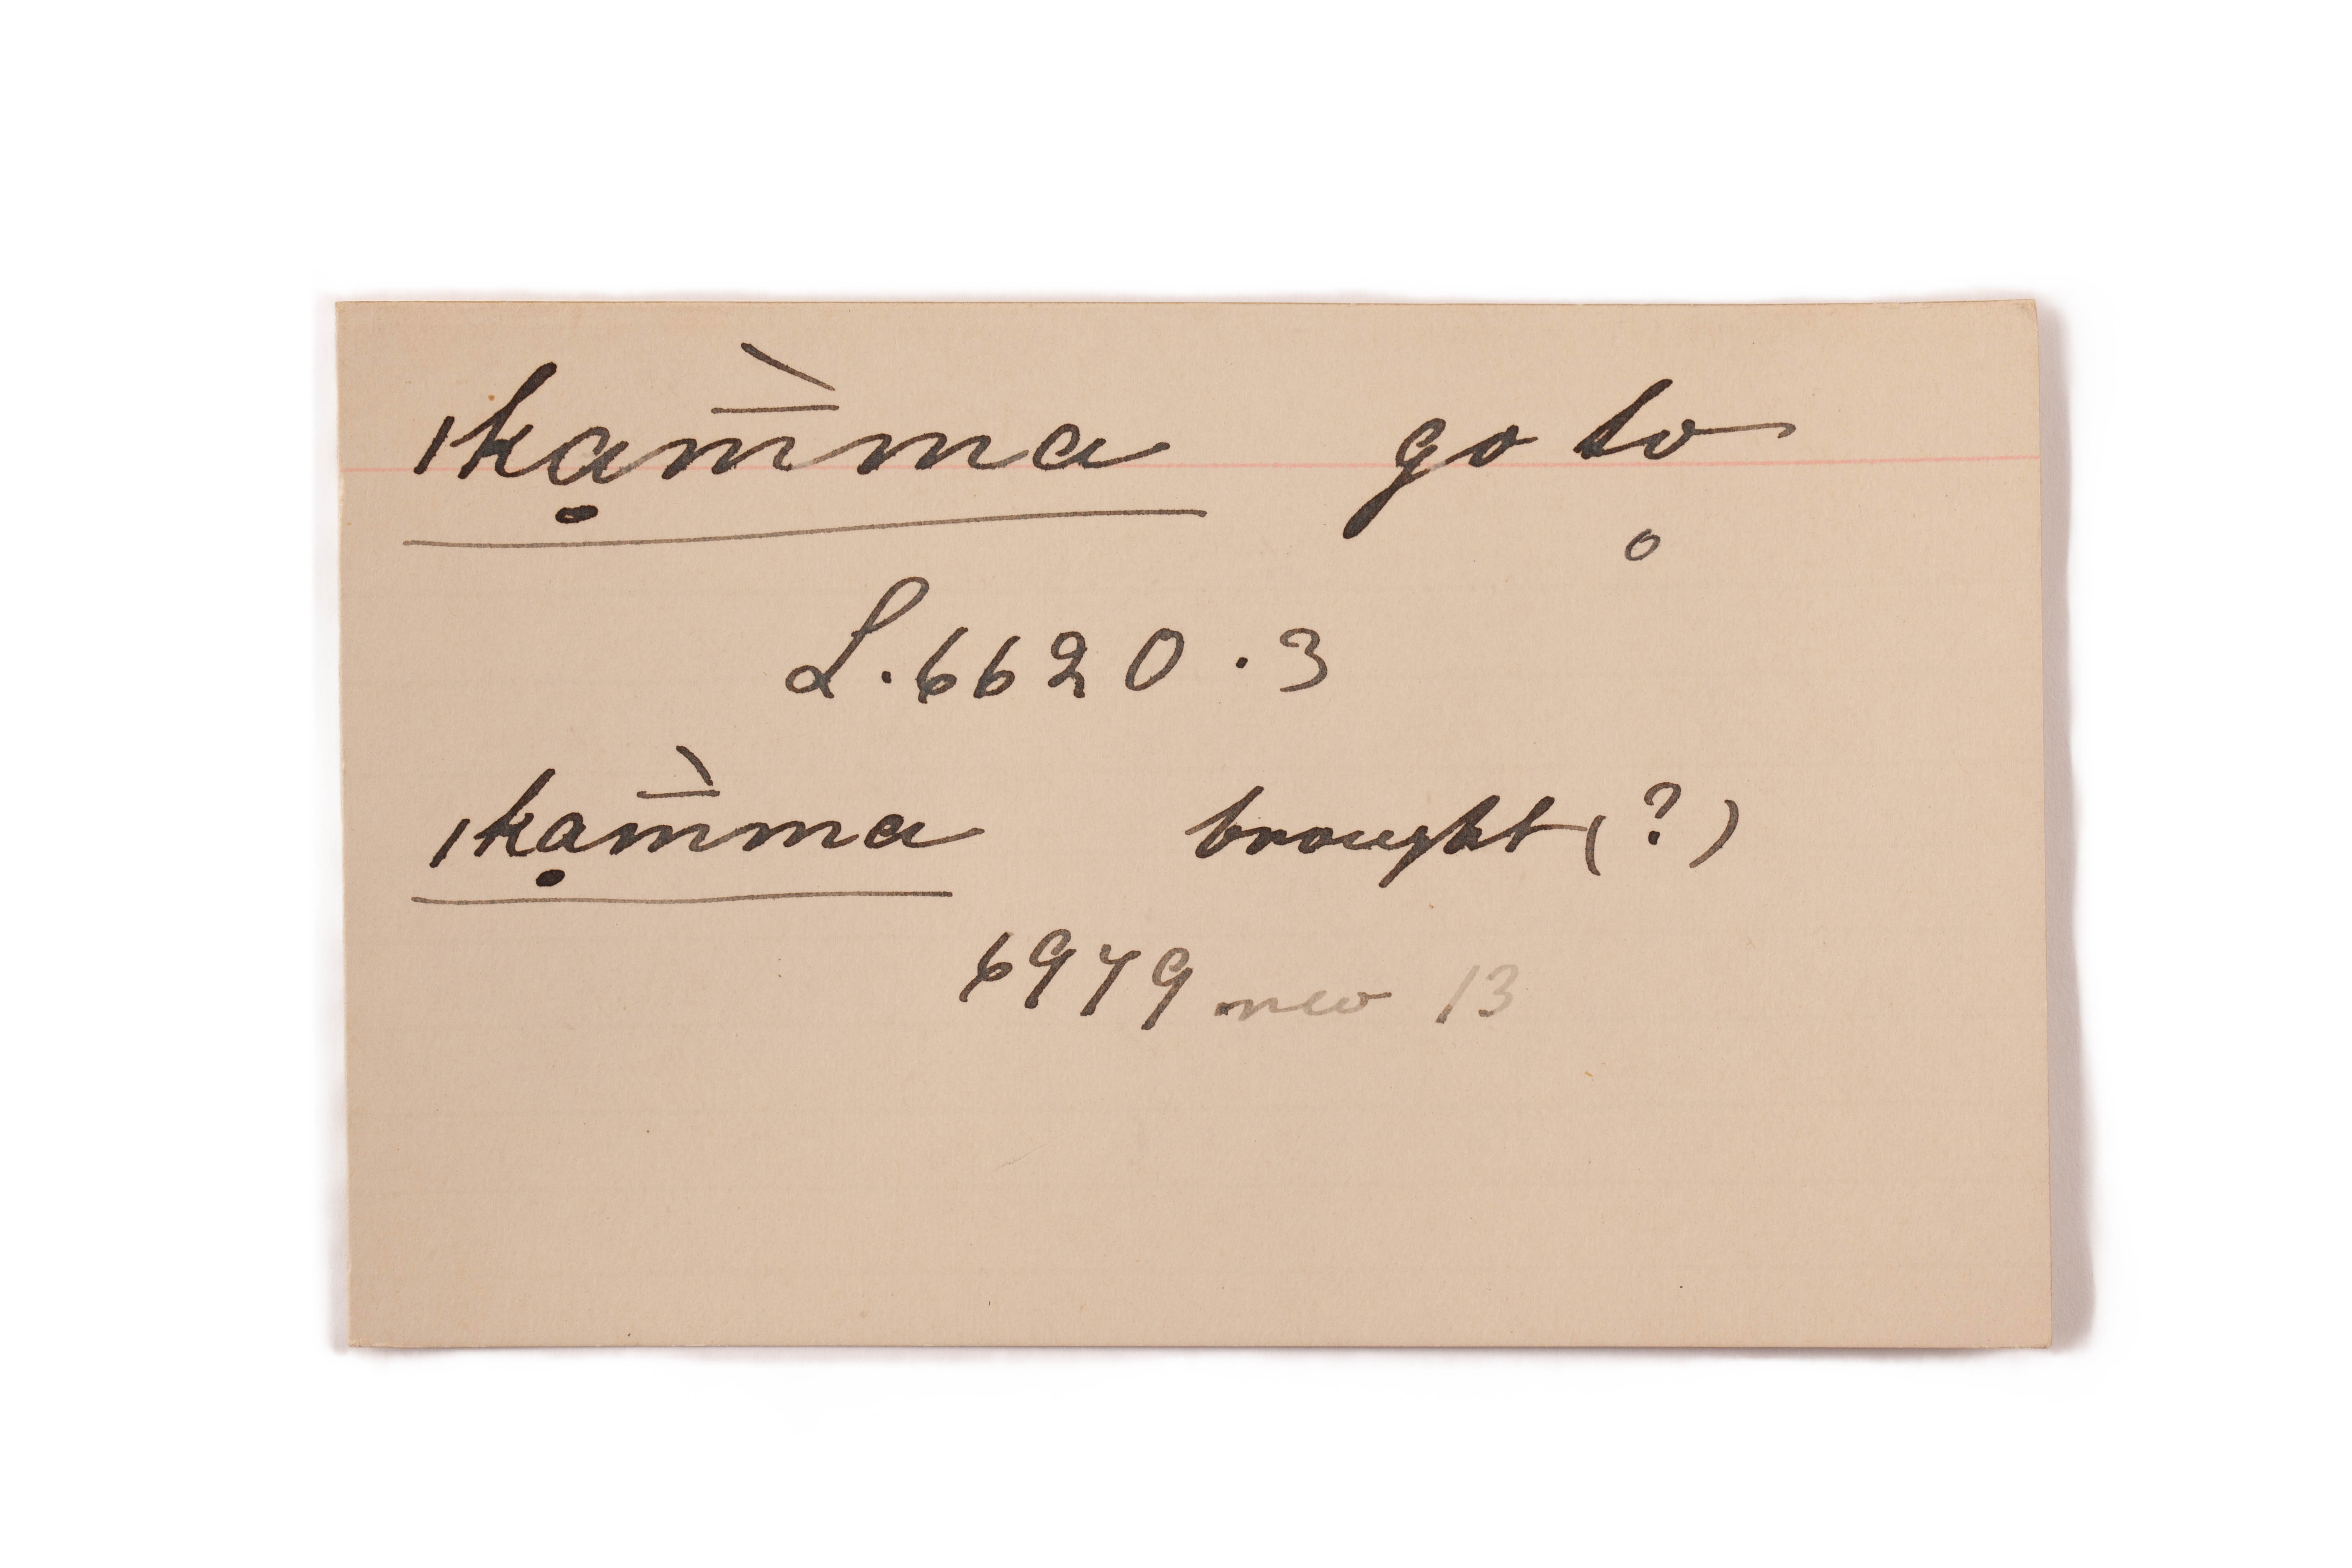 ǀkạm̄̀ma go to
o
L.6620.3
ǀkạm̄̀ma brought (?)
6979 rev 13